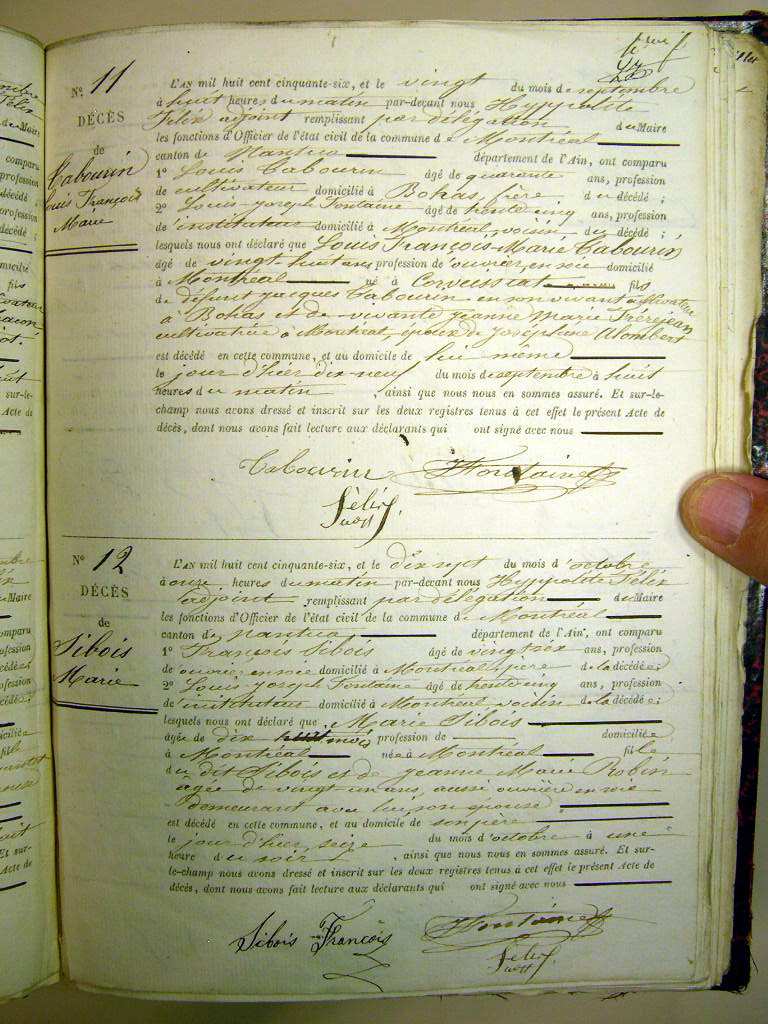 N.° 11
DÉCÈS
de
Cabourin
Louis François
Marie
L'AN mil huit cent cinquante-six, et le vingt du mois de septembre
à huit heures du matin par-devant nous Hyppolite
Félix adjoint remplissant par délégation du Maire
les fonctions d'Officier de l'état civil de la commune de Montréal
canton de Nantua département de l'Ain, ont comparu
1° Louis Cabourin âgé de quarante ans, profession
de cultivateur domicilié à Bohas, frère du décédé ;
2° Louis-Joseph Fontaine âgé de trente cinq ans, profession
d'instituteur domicilié à Montréal, voisin du décédé ;
lesquels nous ont déclaré que Louis François-Marie Cabourin
âgé de vingt huit ans profession d'ouvrier en soie domicilié
à Montréal né à Corveissiat fils
de défunt Jacques Cabourin en son vivant cultivateur
à Bohas et de vivante Jeanne Marie Fréréjean
cultivatrice à Montréal, époux de Joséphine Alombert
est décédé en cette commune, et au domicile de lui même
le jour d'hier dix-neuf du mois de septembre à huit
heures du matin, ainsi que nous nous en sommes assuré. Et sur-le-
champ nous avons dressé et inscrit sur les deux registres tenus à cet effet le présent Acte de
décès, dont nous avons fait lecture aux déclarants qui ont signé avec nous
Cabourin Fontaine
Félix
N° 12
DÉCÈS
de
Sibois
Marie
L'AN mil huit cent cinquante-six, et le dix sept du mois d'octobre
à onze heures du matin par-devant nous Hyppolite Félix
adjoint remplissant par délégation du Maire
les fonctions d'Officier de l'état civil de la commune de Montréal
canton de Nantua département de l'Ain, ont comparu
1° François Sibois âgé de vingt six ans, profession
de ouvrier en soie domicilié à Montréal, père de la décédée ;
2° Louis Joseph Fontaine âgé de trente cinq ans, profession
de instituteur domicilié à Montréal voisin de la décédée ;
lesquels nous ont déclaré que Marie Sibois
âgée de dix mois profession de domiciliée
à Montréal née à Montréal fille
du dit Sibois et de Jeanne Marie Robin
agée de vingt un ans, aussi ouvrière en soie
demeurant avec lui, son épouse
est décédé en cette commune, et au domicile de son père
le jour d'hier seize du mois d'octobre à une
heure du soir, ainsi que nous nous en sommes assuré. Et sur-
le-champ nous avons dressé et inscrit sur les deux registres tenus à cet effet le présent Acte de
décès, dont nous avons fait lecture aux déclarants qui ont signé avec nous
Sibois François Fontaine
Félix